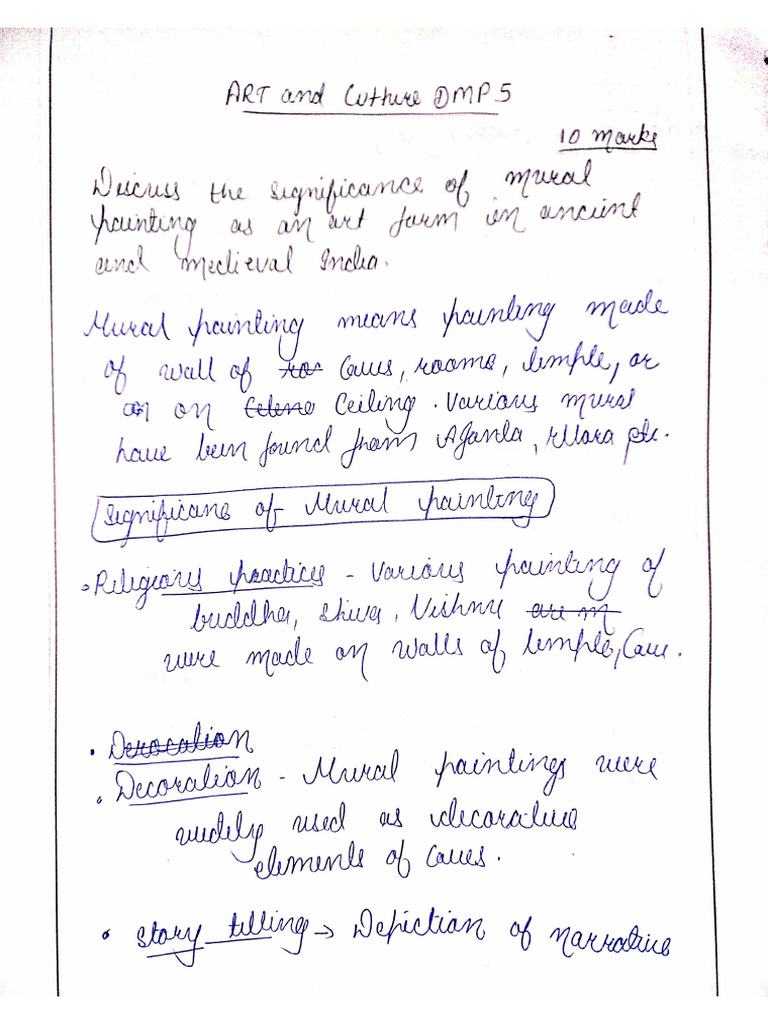 ART and Culture DMP 5
10 marks
Discuss the significance of mural
painting as an art form in ancient
and medieval India.
Mural painting means painting made
of wall of Caves, rooms, temple, or
on Ceiling. Various mural
have been found from Ajanta, ellora etc.
Significans of Mural painting
Religious practices - Various painting of
buddha, Shiva, Vishnu are in
were made on walls of temple, Cave.
• Derocation
• Decoration - Mural paintings were
widely used as decorative
elements of Caves.
• Story telling → Depiction of narrative